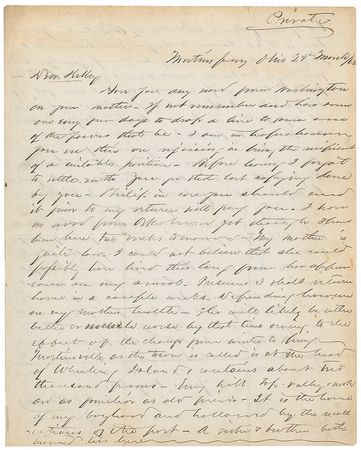 Private
Martins ferry Ohio 29th March
Dear Kelley
Have you any news from Washington
on your matter - If not remember and have some
one very few days to drop a line to
of the powers that be - I am in hopes however
you are there on rejoicing in being the recipient
of a suitable position - Before leaving I forgot
to settle with you for that last copying done
by you - Philip in case you should need
it prior to my return will pay you. I have
no word from yet though I have
been here two weeks tomorrow - My mother is
quite low. I could not believe that she could
possibly live here this long from her appear-
ance on my arrival. I presume I shall return
home in a couple weeks Depending however
on my mothers health - She will likely be either
better or worse by that time owing to the
effect of the change from winter to spring
Martinsville as the town is called is at the head
of Wheeling Island & contains about six
thousand persons - Every hill top, valley & nook
are as familiar as old friends - It is the home
of my boyhood and hallowed by the recoll-
ections of the past - A sister & brother both
married live here